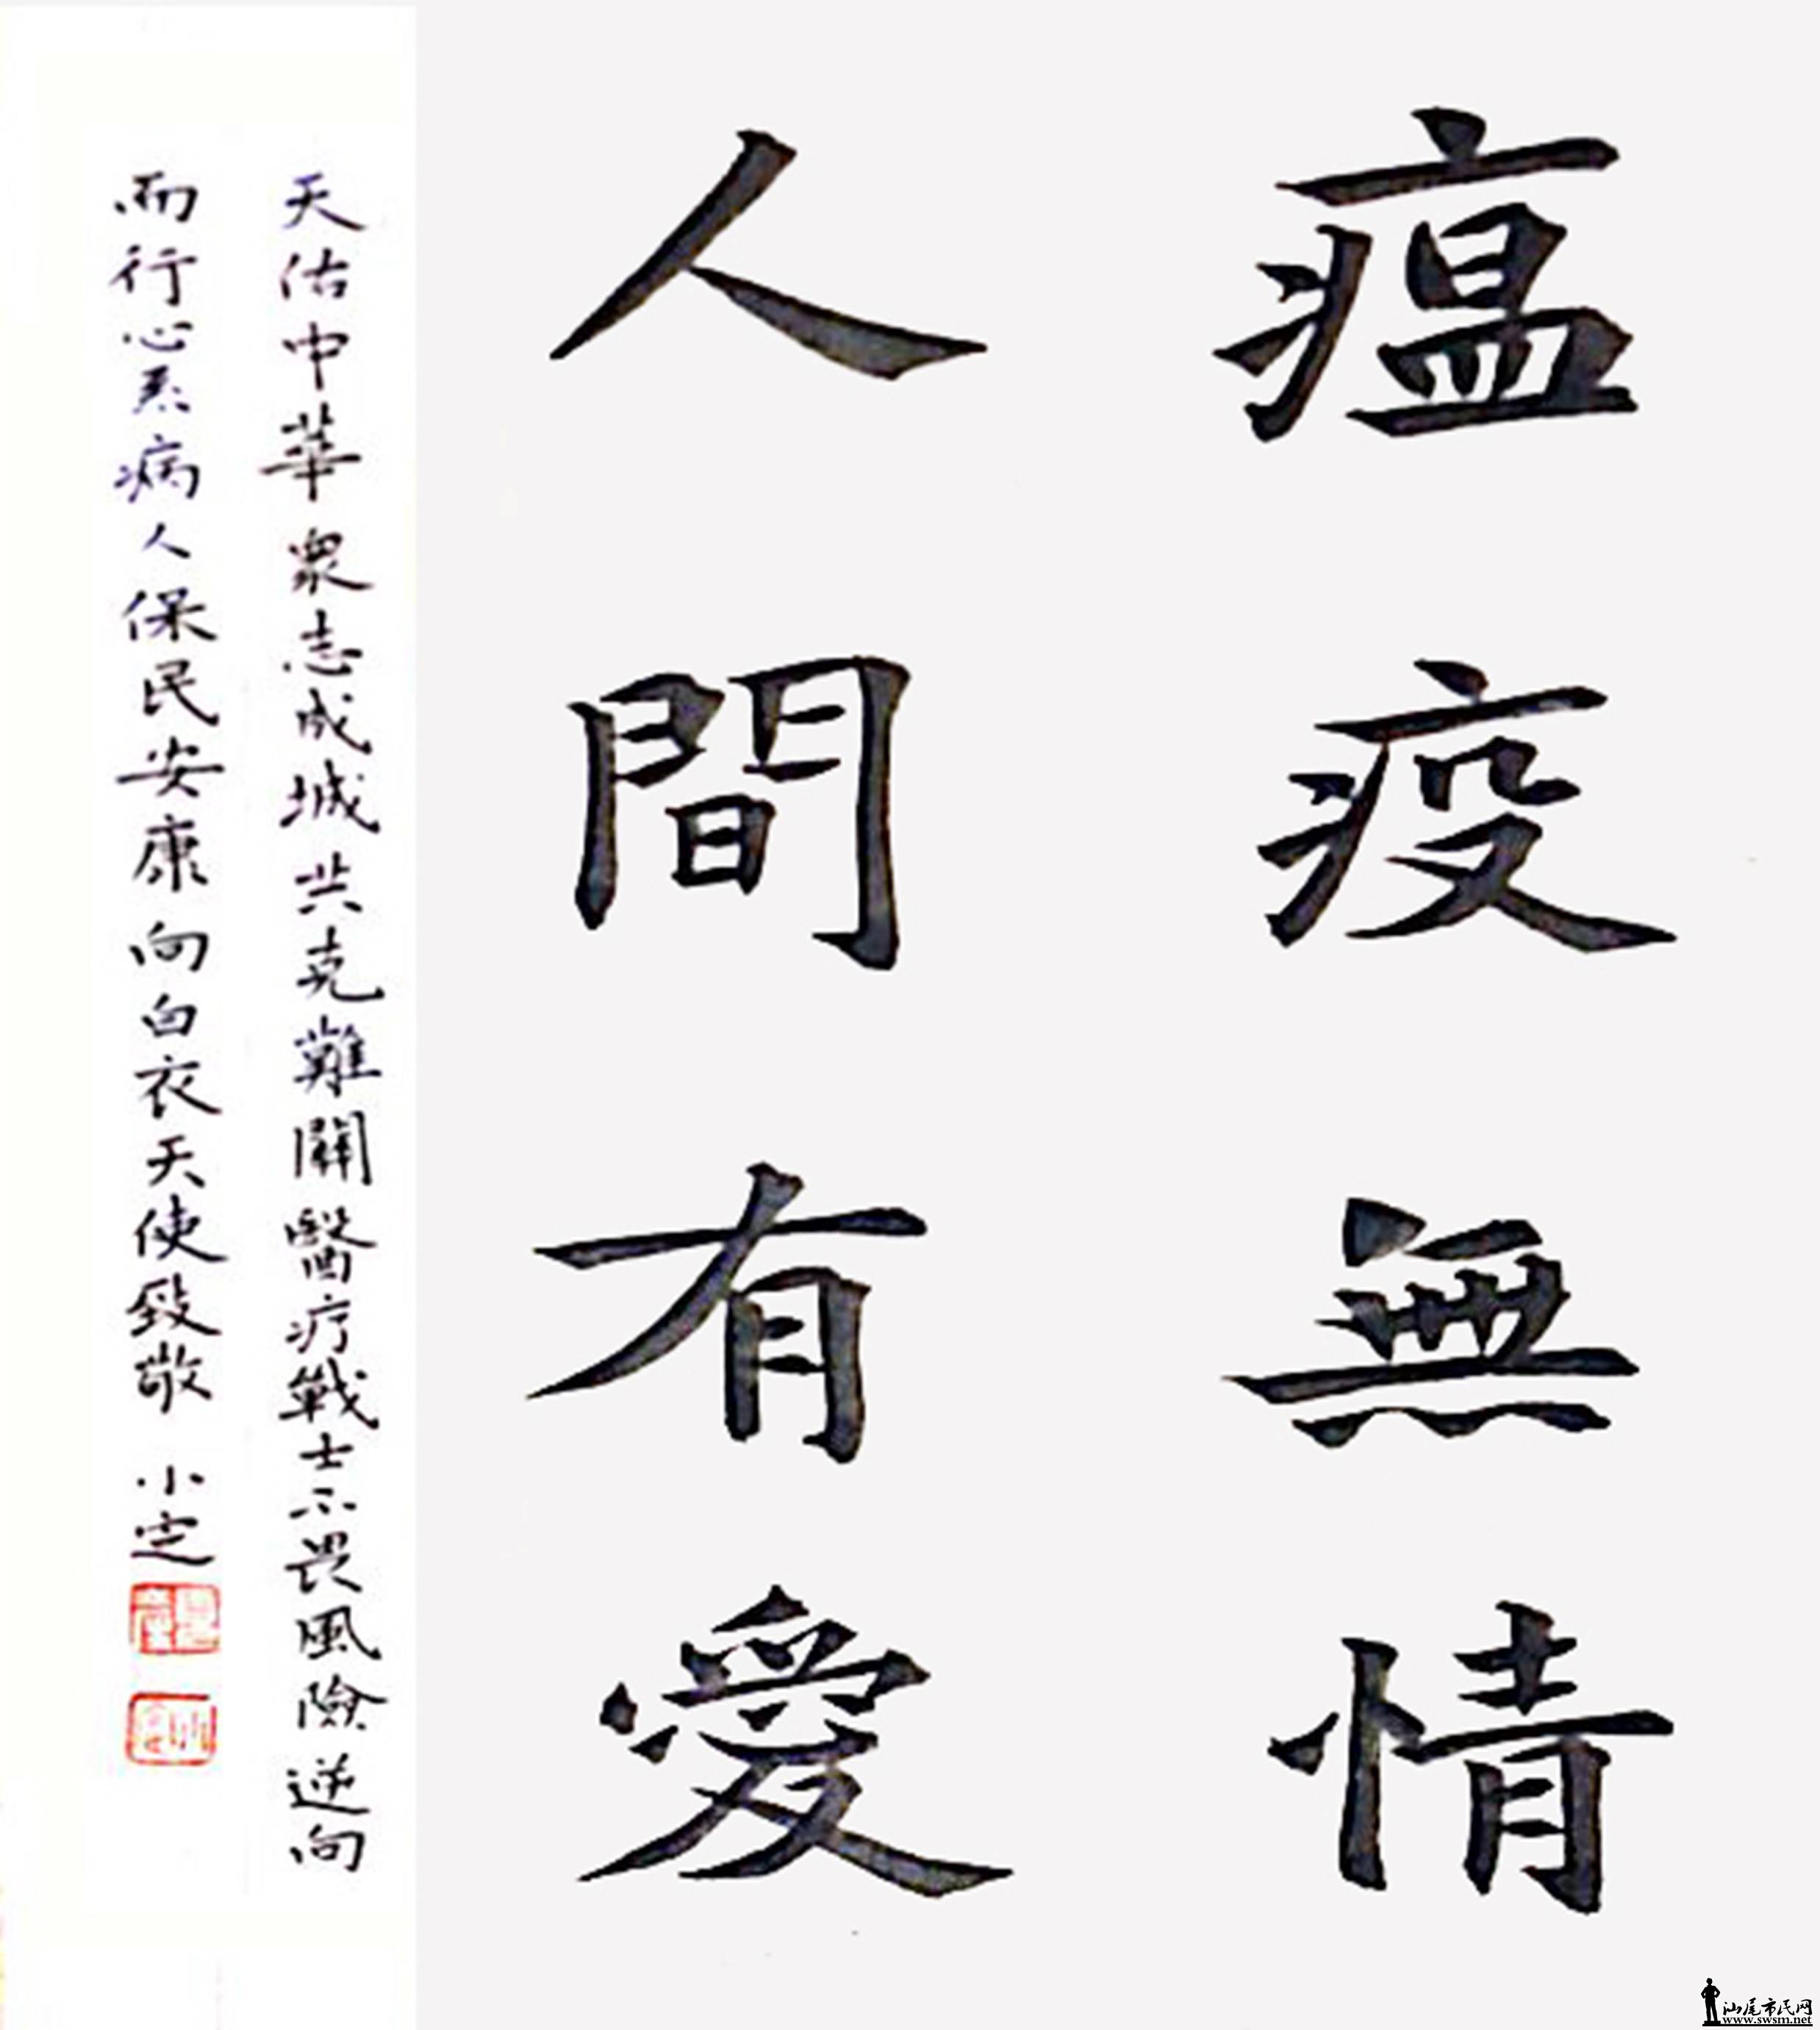 瘟疫無情
人間有愛
天佑中華衆志成城共克難關醫疗戰士不畏風險逆向
而行心系病人保民安康向白衣天使致敬 小定
汕尾市民网
www.swsm.net